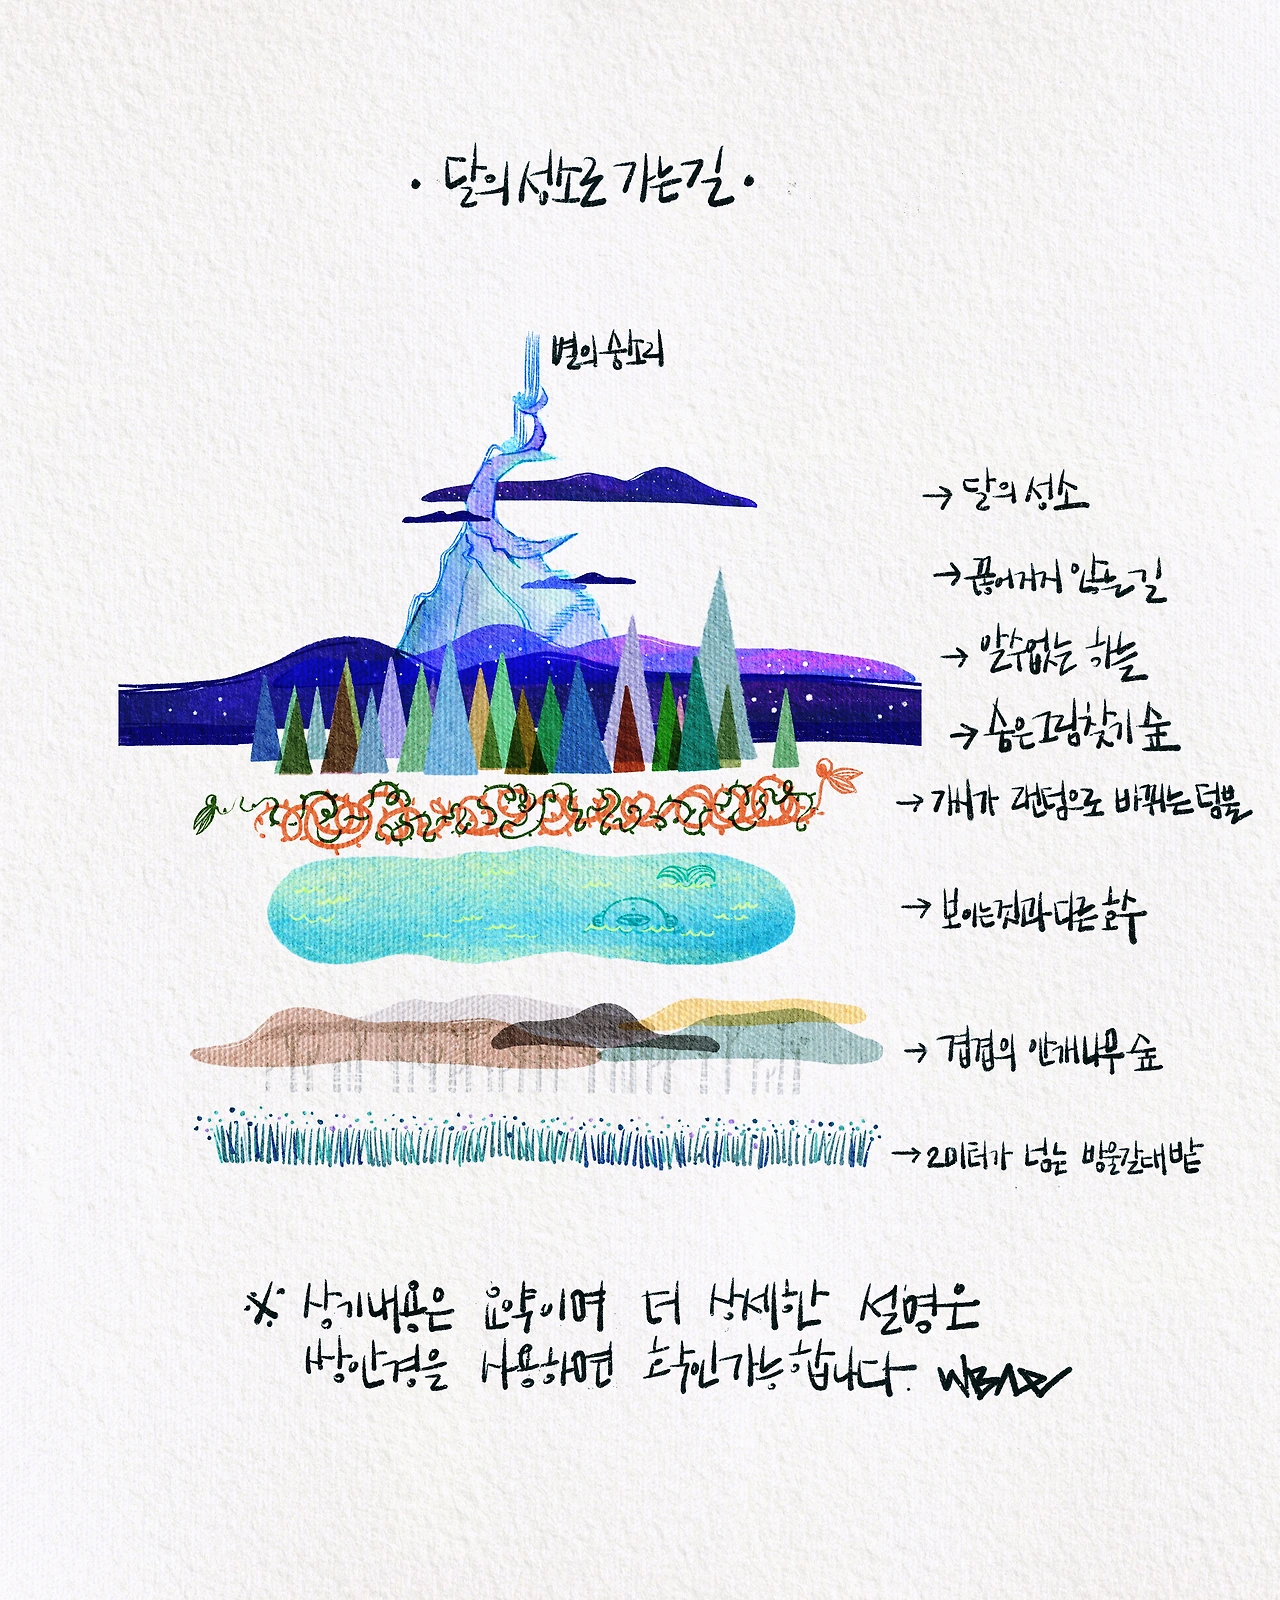 · 달의 성소로 가는길 ·
별의 숨소리
→ 달의 성소
→ 끊어지지 않는 길
→ 알수없는 하늘
→ 숨은그림찾기 숲
→ 가시가 랜덤으로 바뀌는 덤불
→ 보이는것과 다른 호수
→ 겹겹의 안개나무 숲
→ 2미터가 넘는 방울갈대밭
※ 상기내용은 요약이며 더 상세한 설명은
쌍안경을 사용하면 확인가능합니다.